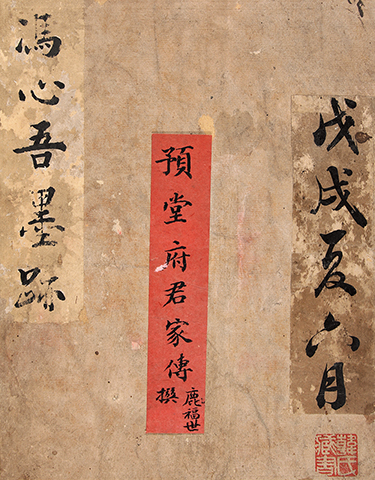 戊戌夏六月
韓氏
藏書
預堂府君家傳
鹿福世
撰
馮心吾墨跡